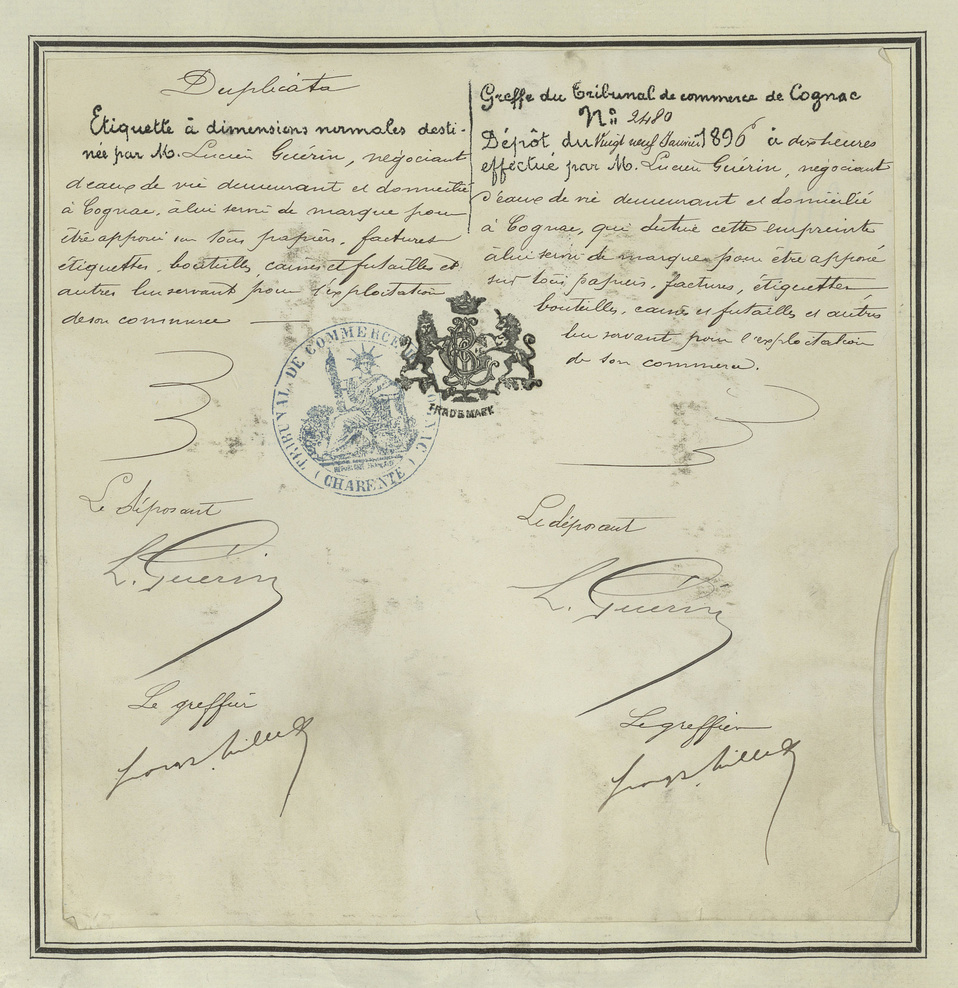 Duplicata
Etiquette à dimensions normales desti-
née par M. Lucien Guérin, négociant
d'eaux de vie demeurant et domicilié
à Cognac, à lui servir de marque pour
être apposée sur tous papiers, factures
étiquettes, bouteilles, caisses et futailles et
autres lui servant pour l'exploitation
de son commerce
Le déposant
L. Guérin
Le greffier
Greffe du Tribunal de commerce de Cognac
N° 2480
Dépôt du Vingt neuf Janvier 1896 à dix heures
effectué par M. Lucien Guérin, négociant
d'eaux de vie demeurant et domicilié
à Cognac, qui destine cette empreinte
à lui servir de marque pour être apposée
sur tous papiers, factures, étiquettes
bouteilles, caisses et futailles et autres
lui servant pour l'exploitation
de son commerce.
TRADE MARK
TRIBUNAL DE COMMERCE COGNAC
(CHARENTE)
Le déposant
L. Guérin
Le greffier